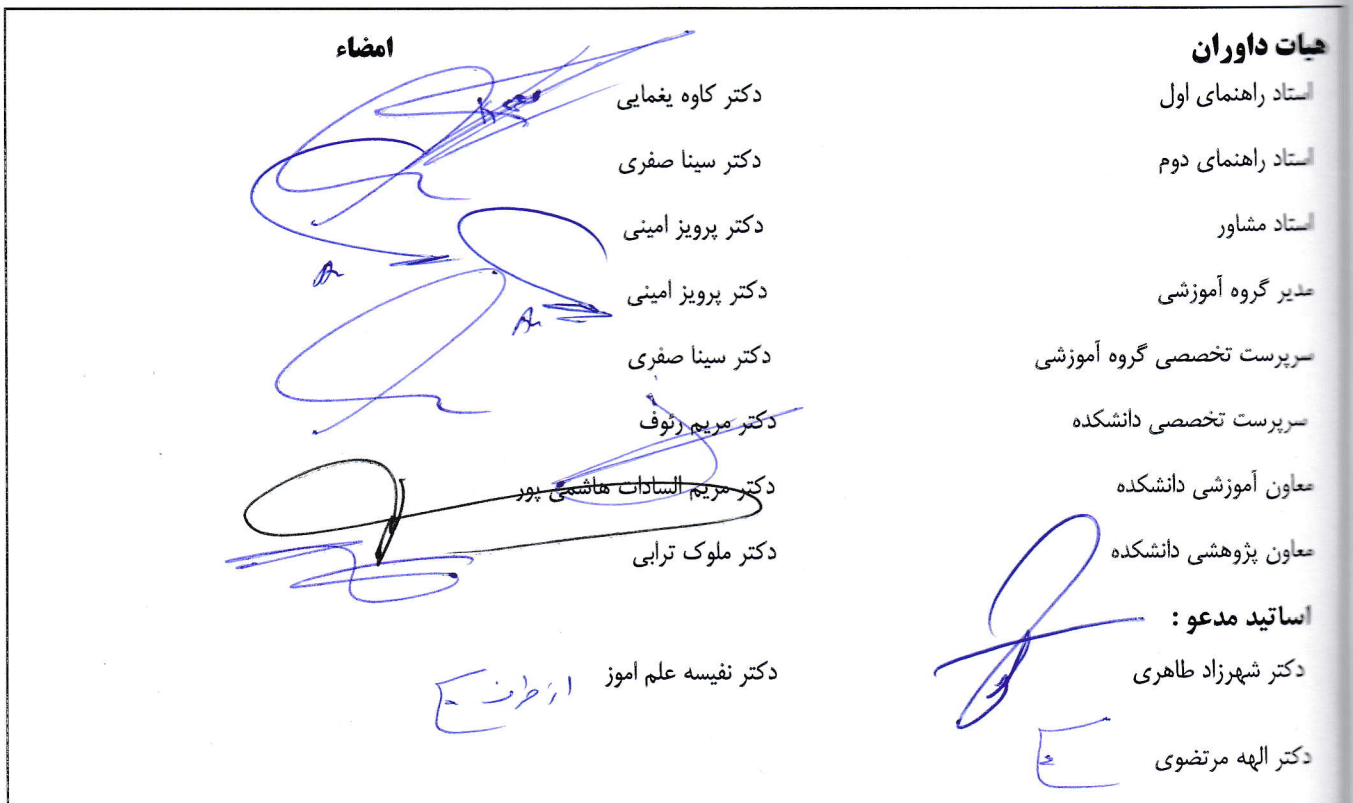 هیات داوران امضاء
استاد راهنمای اول دکتر کاوه یغمایی
استاد راهنمای دوم دکتر سینا صفری
استاد مشاور دکتر پرویز امینی
مدیر گروه آموزشی دکتر پرویز امینی
سرپرست تخصصی گروه آموزشی دکتر سینا صفری
سرپرست تخصصی دانشکده دکتر مریم رئوف
معاون آموزشی دانشکده دکتر مریم السادات هاشمی پور
معاون پژوهشی دانشکده دکتر ملوک ترابی
اساتید مدعو :
دکتر شهرزاد طاهری دکتر نفیسه علم اموز از طرف
دکتر الهه مرتضوی